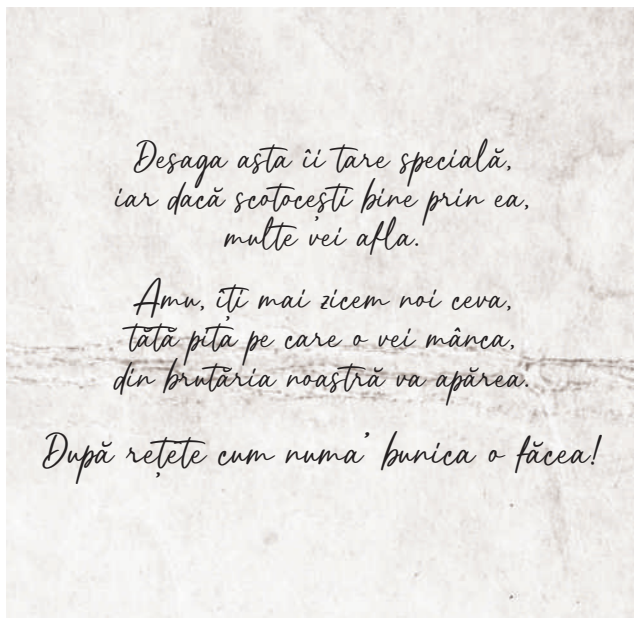 Desaga asta îi tare specială,
iar dacă scotocești bine prin ea,
multe vei afla.
Amu, îți mai zicem noi ceva,
tătă pita pe care o vei mânca,
din brutăria noastră va apărea.
După rețete cum numa' bunica o făcea!